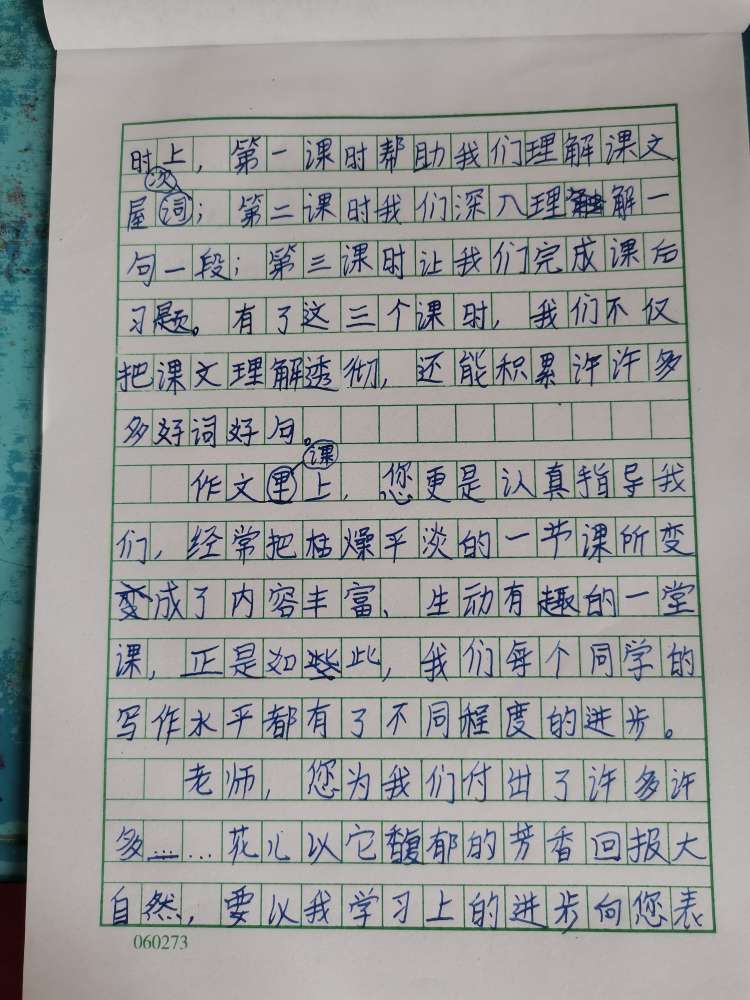 时上，第一课时帮助我们理解课文
次
屋词；第二课时我们深入理解一
句一段；第三课时让我们完成课后
习题。有了这三个课时，我们不仅
把课文理解透彻，还能积累许许多
多好词好句。
课
作文里上，您更是认真指导我
们，经常把枯燥平淡的一节课所变
变成了内容丰富、生动有趣的一堂
课，正是如此，我们每个同学的
写作水平都有了不同程度的进步。
老师，您为我们付出了许多许
多……花儿以它馥郁的芳香回报大
自然，要以我学习上的进步向您表
060273